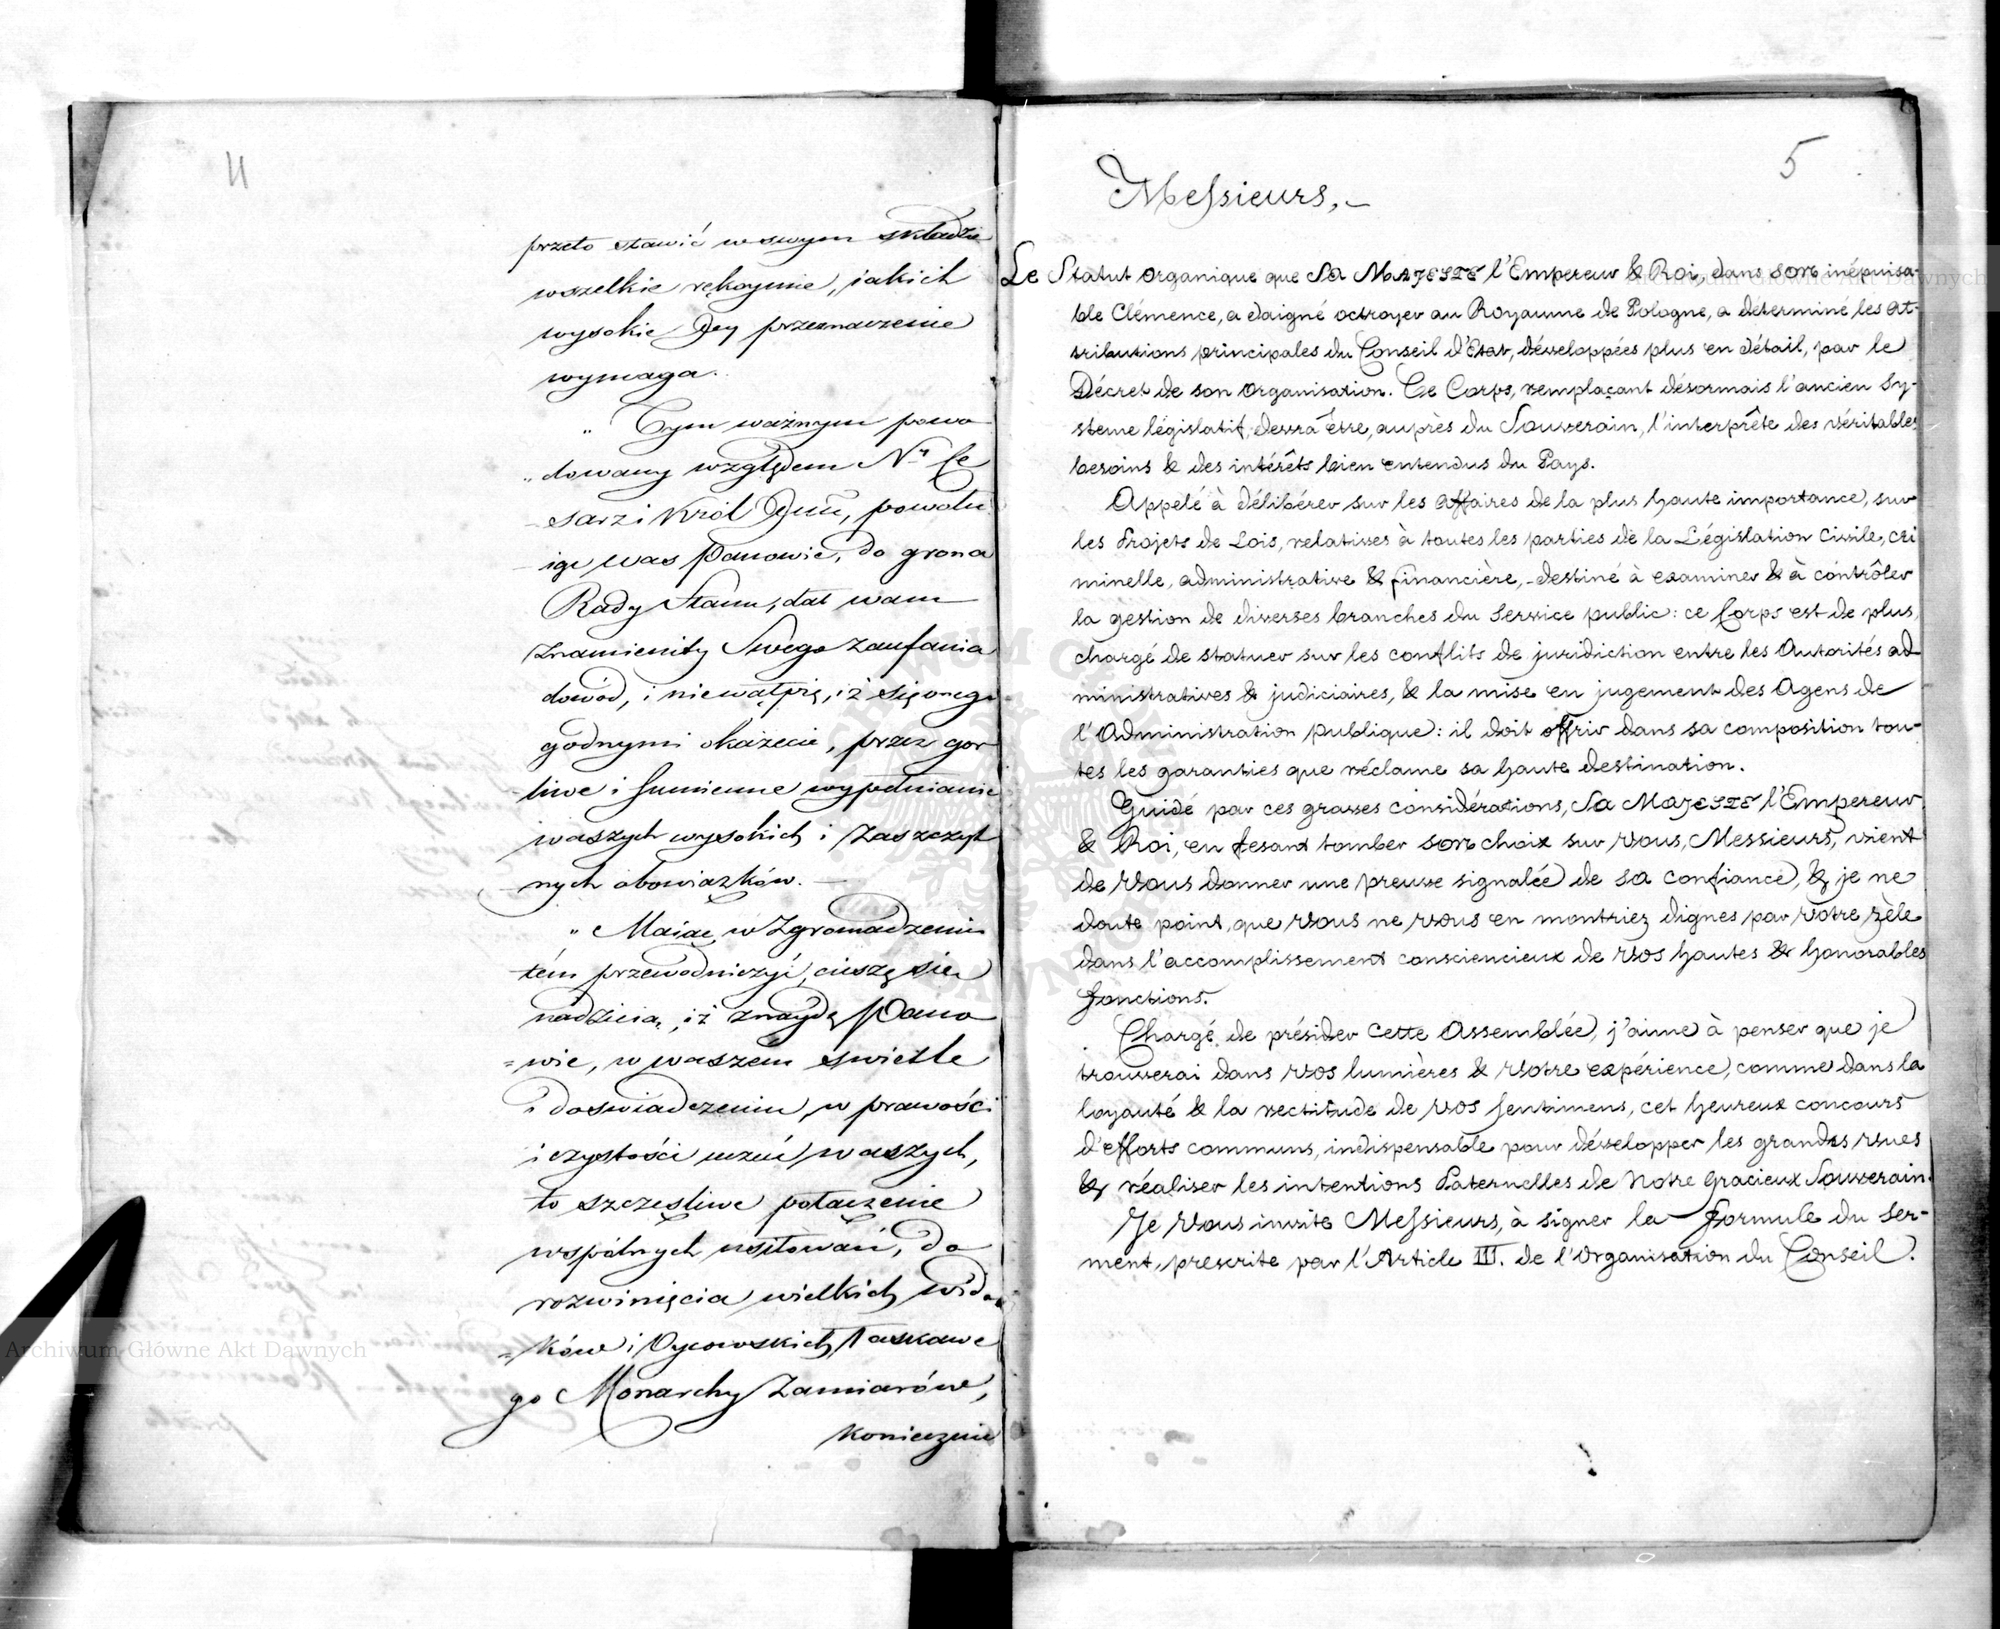 4
przeto stawić w swym składzie
wszelkie rękoymie, iakich
wysokie Jey przeznaczenie
wymaga.
„ Tym ważnym powo
„dowany względem N. Ce
sarz i Król Jmć, powołu
iąc was Panowie, do grona
Rady Stanu, dał wam
znamienity Swego zaufania
dowód, i niewątpię, iż się onego
godnymi okażecie, przez gor
liwe i sumienne wypełnianie
waszych wysokich i zaszczyt
nych obowiązków. —
„ Maiąc w Zgromadzeniu
tém przewodniczyć, cieszę się
nadzieią, iż znaydę Pano
=wie, w waszém swietle
i doswiadczeniu, w prawości
i czystości uczuć waszych,
to szczęsliwe połączenie
wspólnych usiłowań, do
rozwinięcia wielkich wido
=ków i Oycowskich łaskawe
go Monarchy Zamiarów,
koniecznie
5
Messieurs, —
Le Statut organique que Sa MAJESTÉ l'Empereur & Roi, dans son inépuisa-
ble Clémence, a daigné octroyer au Royaume de Pologne, a déterminé les at-
tributions principales du Conseil d'Etat, développées plus en détail, par le
Décret de son organisation. Ce Corps, remplaçant désormais l'ancien Sy-
steme législatif, devra être, auprès du Souverain, l'interprête des véritables
besoins & des intérêts bien entendus du Pays.
Appelé à délibérer sur les affaires de la plus haute importance, sur
les Projets de Lois, relatives à toutes les parties de la Législation Civile, cri
minelle, administrative & financière, - destiné à examiner & à contrôler
la gestion de diverses branches du Service public: ce Corps est de plus,
chargé de statuer sur les conflits de juridiction entre les Autorités ad
ministratives & judiciaires, & la mise en jugement des Agens de
l'Administration publique: il doit offrir dans sa composition tou-
tes les garanties que réclame sa haute destination.
Guidé par ces graves considérations, Sa MAJESTÉ l'Empereur
& Roi, en fesant tomber son choix sur Vous, Messieurs, vient
de Vous donner une preuve signalée de sa confiance, & je ne
doute point, que Vous ne Vous en montriez dignes par Votre zèle
dans l'accomplissement consciencieux de Vos hautes & honorables
fonctions.
Chargé de présider cette Assemblée, j'aime à penser que je
trouverai dans Vos lumières & Votre expérience, comme dans la
loyauté & la rectitude de Vos sentimens, cet heureux concours
d'efforts communs, indispensable pour développer les grandes vues
& réaliser les intentions Paternelles de Notre Gracieux Souverain.
Je Vous invite Messieurs, à signer la formule du Ser-
ment, prescrite par l'Article III. de l'Organisation du Conseil.
Archiwum Główne Akt Dawnych
Archiwum Główne Akt Dawnych